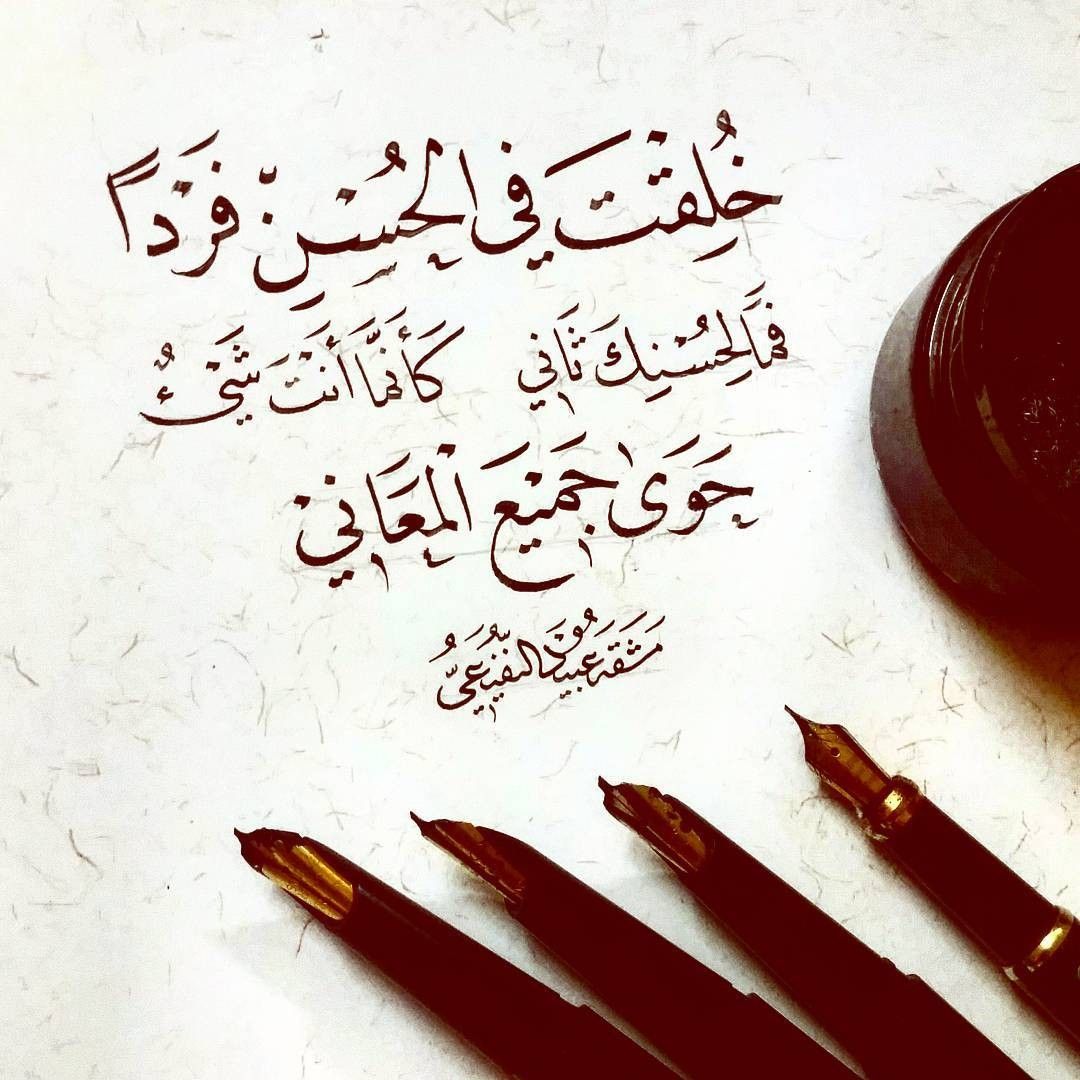 خُلِقْتَ فِي الْحُسْنِ فَرْدًا
فَمَا لِحُسْنِكَ ثَانِي كَأَنَّمَا أَنْتَ شَيْءٌ
حَوَى جَمِيْعَ الْمَعَانِيْ
مَشَقَهُ عَبِيدُ النفيعيُّ